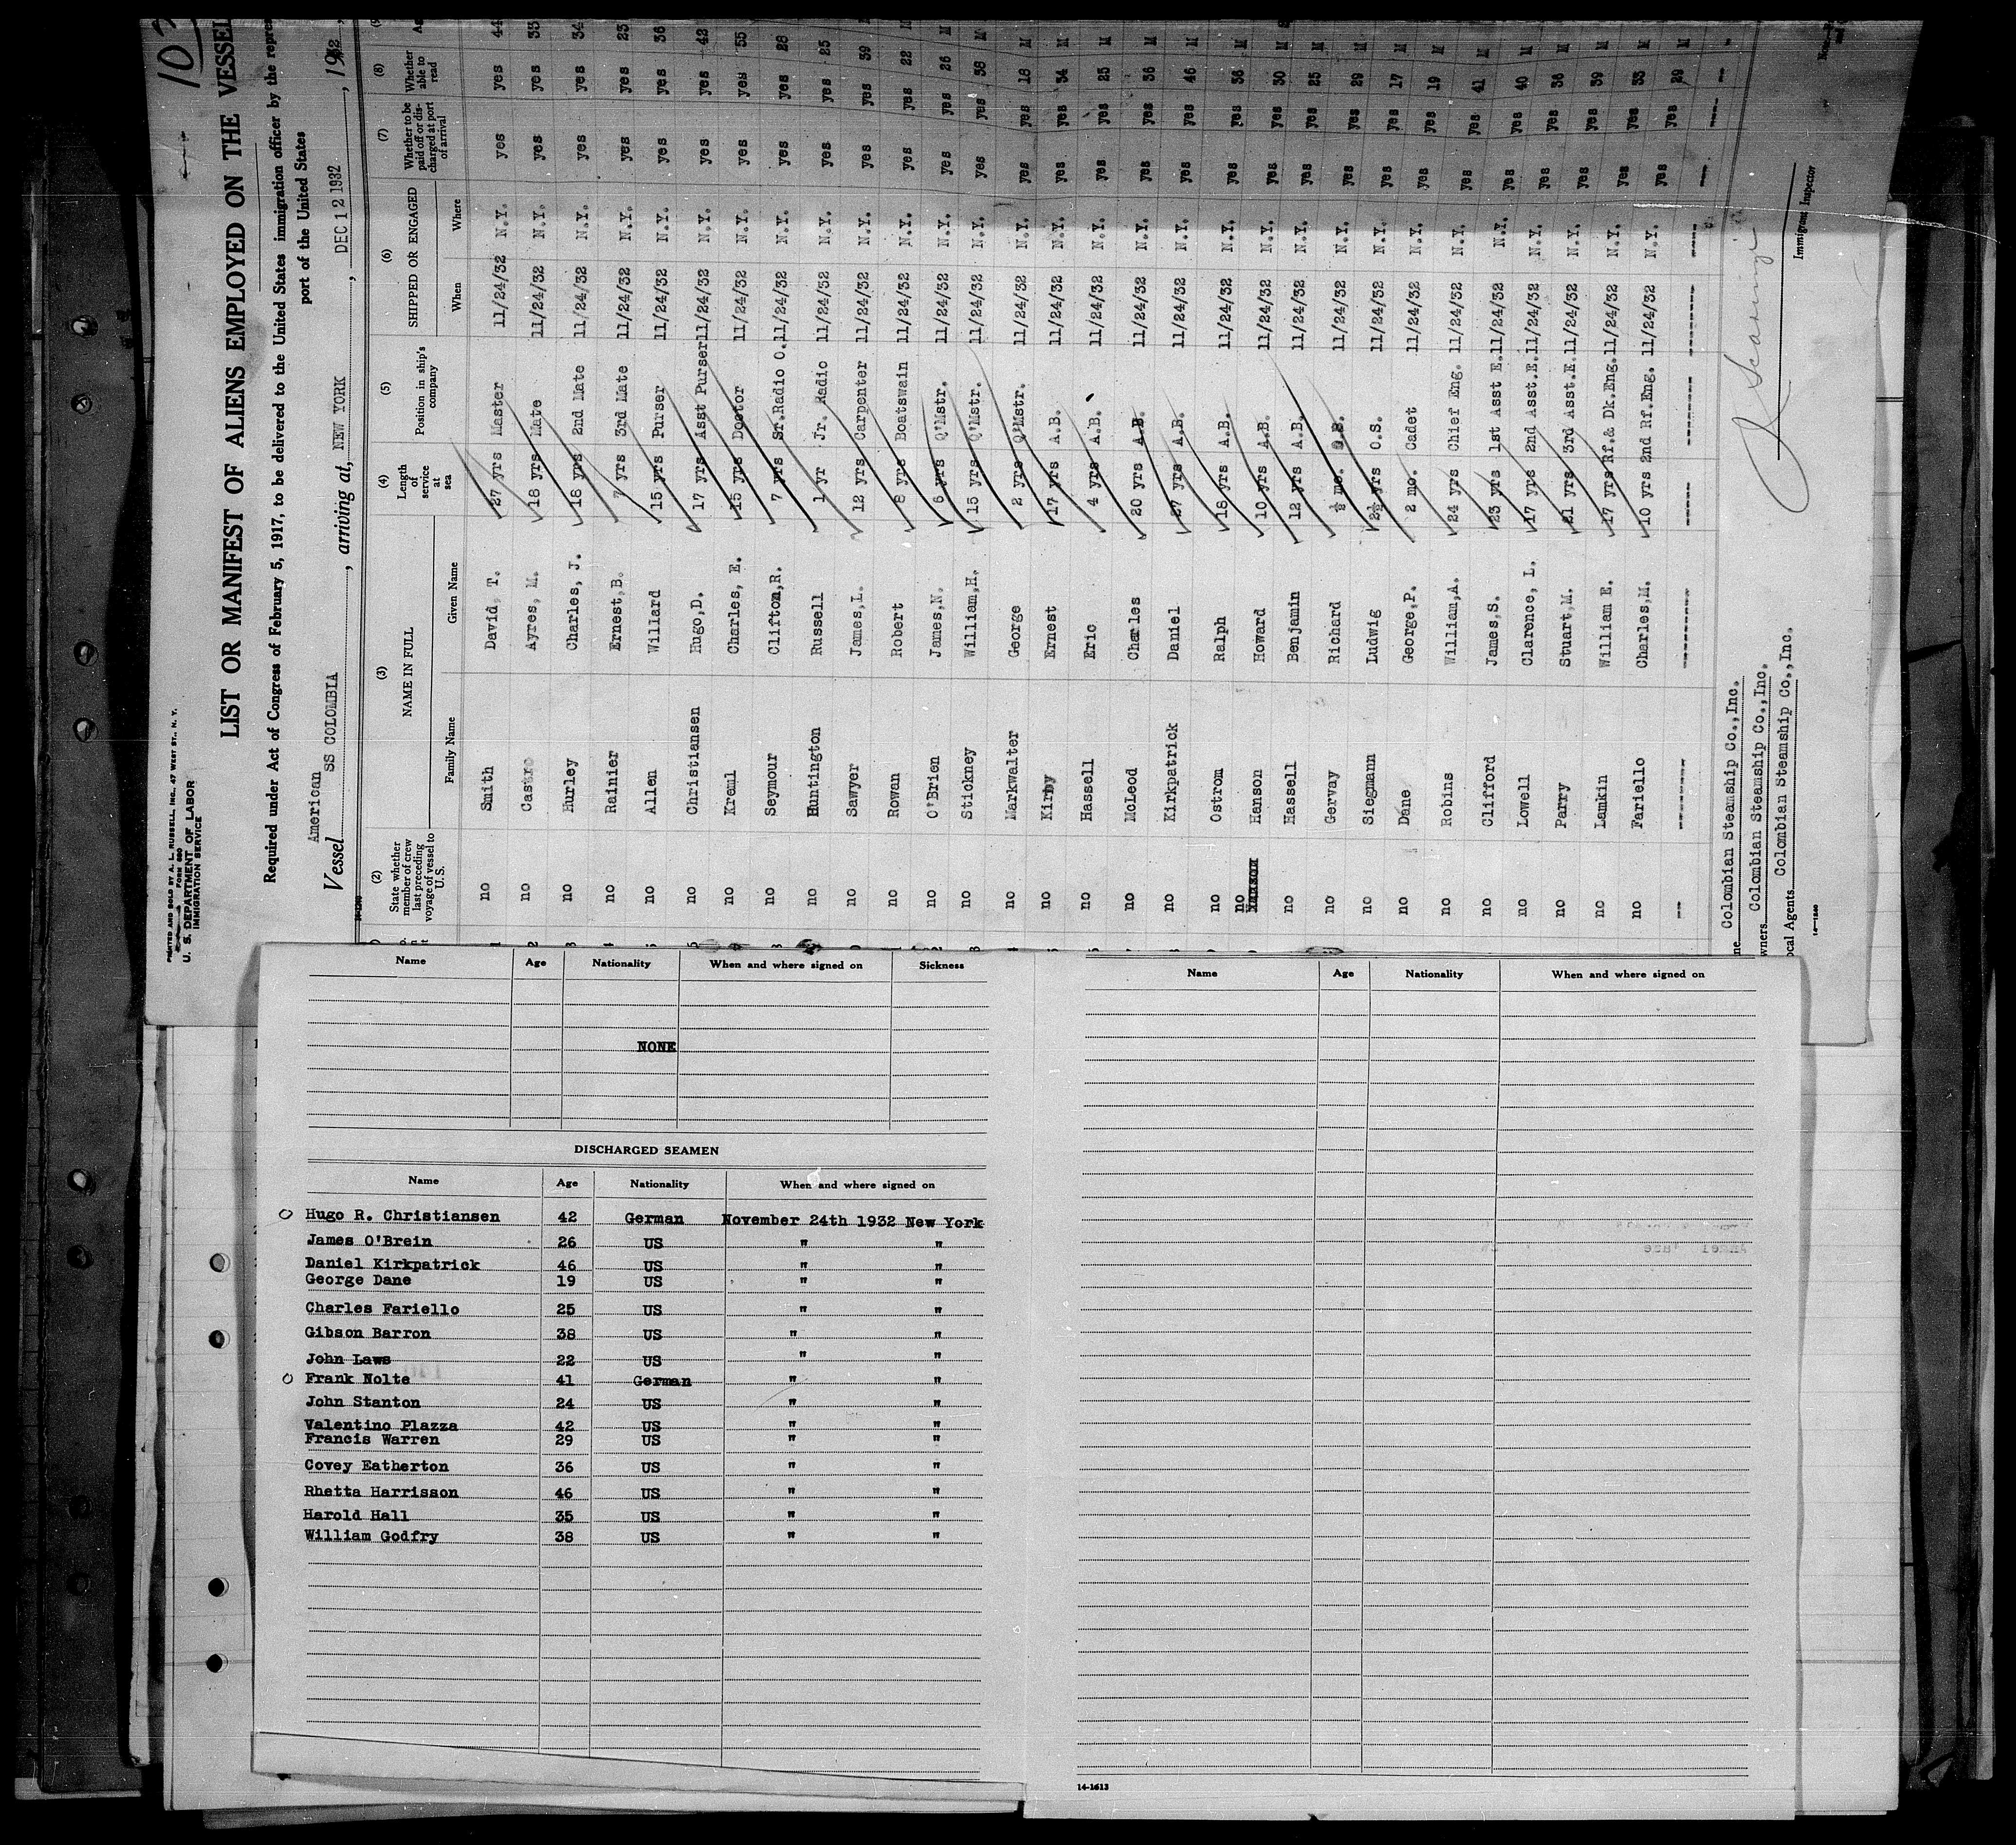 103
PRINTED AND SOLD BY A. L. RUSSELL, INC., 47 WEST ST., N. Y.
FORM 680
U. S. DEPARTMENT OF LABOR
IMMIGRATION SERVICE
LIST OR MANIFEST OF ALIENS EMPLOYED ON THE VESSEL
Required under Act of Congress of February 5, 1917, to be delivered to the United States immigration officer by the repres
port of the United States
American
Vessel SS COLOMBIA, arriving at, NEW YORK, DEC 12 1932, 1932
(2) (3) (4) (5) (6) (7) (8)
State whether member of crew last preceding voyage of vessel to U. S. NAME IN FULL Length of service at sea Position in ship's company SHIPPED OR ENGAGED Whether to be paid off or discharged at port of arrival Whether able to read
Family Name Given Name When Where
no Smith David, T. 27 yrs Master 11/24/32 N.Y. yes yes 44
no Castro Ayres, M. 18 yrs Mate 11/24/32 N.Y. yes yes 33
no Hurley Charles, J. 18 yrs 2nd Mate 11/24/32 N.Y. yes yes 34
no Rainier Ernest,B. 7 yrs 3rd Mate 11/24/32 N.Y. yes yes 23
no Allen Willard 15 yrs Purser 11/24/32 N.Y. yes yes 36
no Christiansen Hugo,D. 17 yrs Asst Purser 11/24/32 N.Y. yes yes 42
no Kreml Charles, E. 15 yrs Doctor 11/24/32 N.Y. yes yes 55
no Seymour Clifton,R. 7 yrs Sr.Radio O. 11/24/32 N.Y. yes yes 28
no Huntington Russell 1 yr Jr. Radio 11/24/32 N.Y. yes yes 25
no Sawyer James,L. 12 yrs Carpenter 11/24/32 N.Y. yes yes 39
no Rowan Robert 8 yrs Boatswain 11/24/32 N.Y. yes yes 22 M
no O'Brien James,N. 6 yrs Q'Mstr. 11/24/32 N.Y. yes yes 26 M
no Stickney William,H. 15 yrs Q'Mstr. 11/24/32 N.Y. yes yes 38 M
no Markwalter George 2 yrs Q'Mstr. 11/24/32 N.Y. yes yes 18 M
no Kirby Ernest 17 yrs A.B. 11/24/32 N.Y. yes yes 34 M
no Hassell Eric 4 yrs A.B. 11/24/32 N.Y. yes yes 25 M
no McLeod Charles 20 yrs A.B. 11/24/32 N.Y. yes yes 36 M
no Kirkpatrick Daniel 27 yrs A.B. 11/24/32 N.Y. yes yes 46 M
no Ostrom Ralph 18 yrs A.B. 11/24/32 N.Y. yes yes 36 M
no Hanson Howard 10 yrs A.B. 11/24/32 N.Y. yes yes 30 M
no Hassell Benjamin 12 yrs A.B. 11/24/32 N.Y. yes yes 25 M
no Gervay Richard ½ mo. O.S. 11/24/32 N.Y. yes yes 29 M
no Siegmann Ludwig 2½ yrs O.S. 11/24/32 N.Y. yes yes 17 M
no Dane George,P. 2 mo. Cadet 11/24/32 N.Y. yes yes 19 M
no Robins William,A. 24 yrs Chief Eng. 11/24/32 N.Y. yes yes 41 M
no Clifford James,S. 23 yrs 1st Asst E. 11/24/32 N.Y. yes yes 40 M
no Lowell Clarence, L. 17 yrs 2nd Asst.E. 11/24/32 N.Y. yes yes 36 M
no Parry Stuart,M. 21 yrs 3rd Asst.E. 11/24/32 N.Y. yes yes 39 M
no Lamkin William E. 17 yrs Rf.& Dk.Eng. 11/24/32 N.Y. yes yes 33 M
no Fariello Charles,M. 10 yrs 2nd Rf.Eng. 11/24/32 N.Y. yes yes 29 M
Colombian Steamship Co.,Inc.
wners Colombian Steamship Co.,Inc.
ocal Agents Colombian Steamship Co.,Inc.
Immigrant Inspector
Name Age Nationality When and where signed on Sickness
NONE
DISCHARGED SEAMEN
Name Age Nationality When and where signed on
Hugo R. Christiansen 42 German November 24th 1932 New York
James O'Brein 26 US " "
Daniel Kirkpatrick 46 US " "
George Dane 19 US " "
Charles Fariello 25 US " "
Gibson Barron 38 US " "
John Laws 22 US " "
Frank Nolte 41 German " "
John Stanton 24 US " "
Valentino Plazza 42 US " "
Francis Warren 29 US " "
Covey Eatherton 36 US " "
Rhetta Harrisson 46 US " "
Harold Hall 35 US " "
William Godfry 38 US " "
Name Age Nationality When and where signed on
14-1613